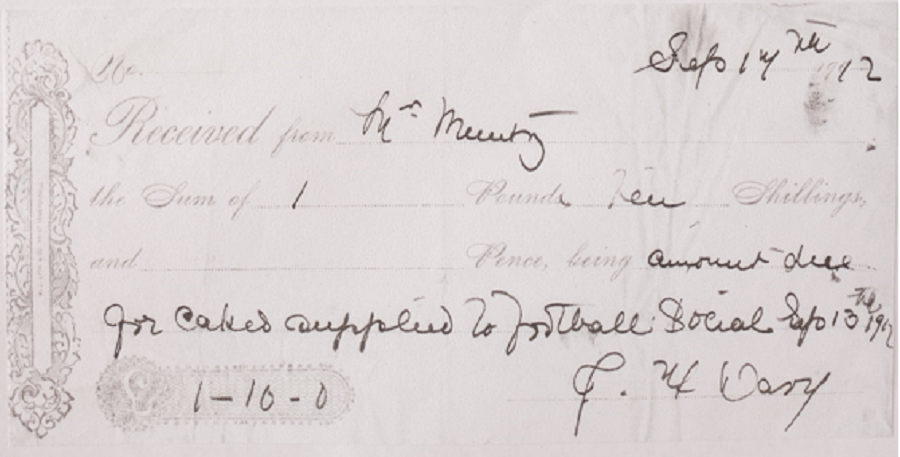 No. Sep 17th 1912
Received from Mr Muntz
the Sum of 1 Pounds Ten Shillings,
and Pence, being amount due
for cakes supplied to football Social Sep 13th 1912
£ 1-10-0
H Davy